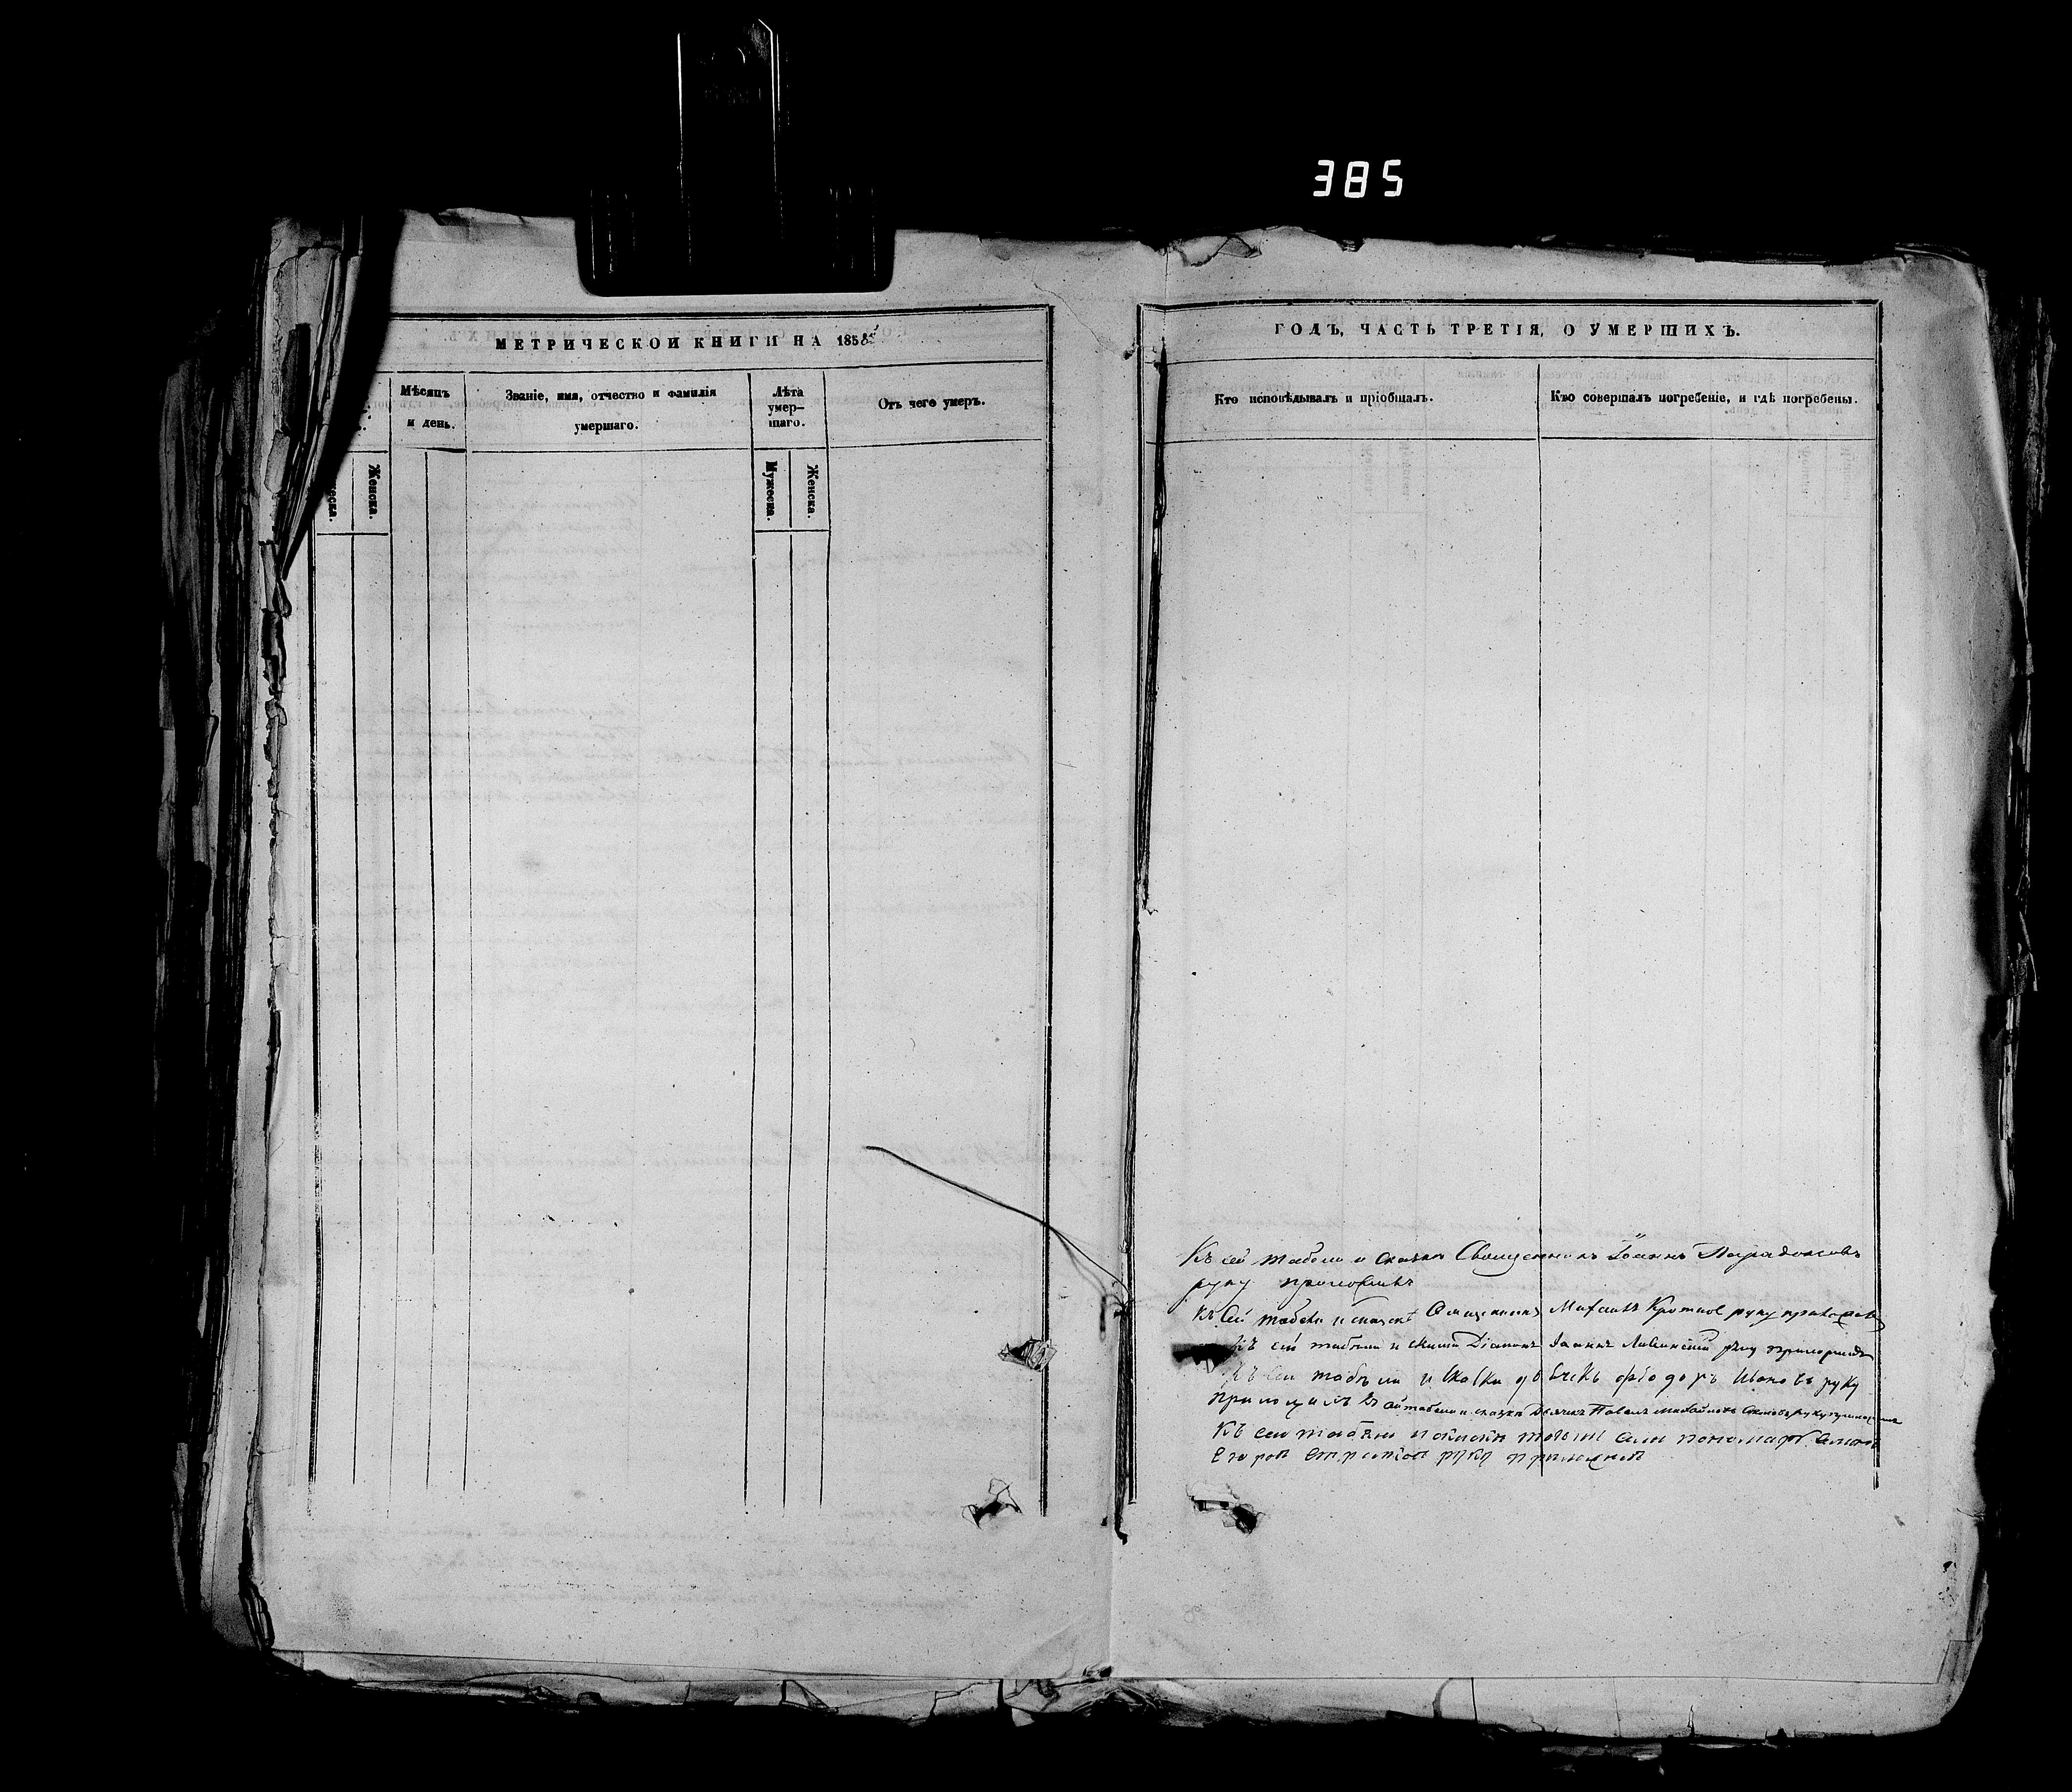 385
МЕТРИЧЕСКОЙ КНИГИ НА 1858
Мѣсяцъ и день.
Званіе, имя, отчество и фамилія умершаго.
Лѣта умер-
шаго.
Отъ чего умеръ.
Женска.
Мужеска.
Женска.
ГОДЪ, ЧАСТЬ ТРЕТІЯ, О УМЕРШИХЪ.
Кто исповѣдывалъ и пріобщалъ.
Кто совершалъ погребеніе, и гдѣ погребены.
Къ сей табели и сказкѣ Священникъ Іоаннъ Парадоксовъ
руку приложилъ
Къ сей табели и сказкѣ Священникъ Михаилъ Кротковъ руку приложилъ
Къ сей табели и сказки Діаконъ Іоаннъ руку приложилъ
Къ сей табели и скаски дьячекъ Ивановъ руку
приложилъ Къ сей табели и сказки Дьячекъ Павелъ Михайловъ руку приложилъ
Къ сей табели и пономарь
Егоровъ руку приложилъ